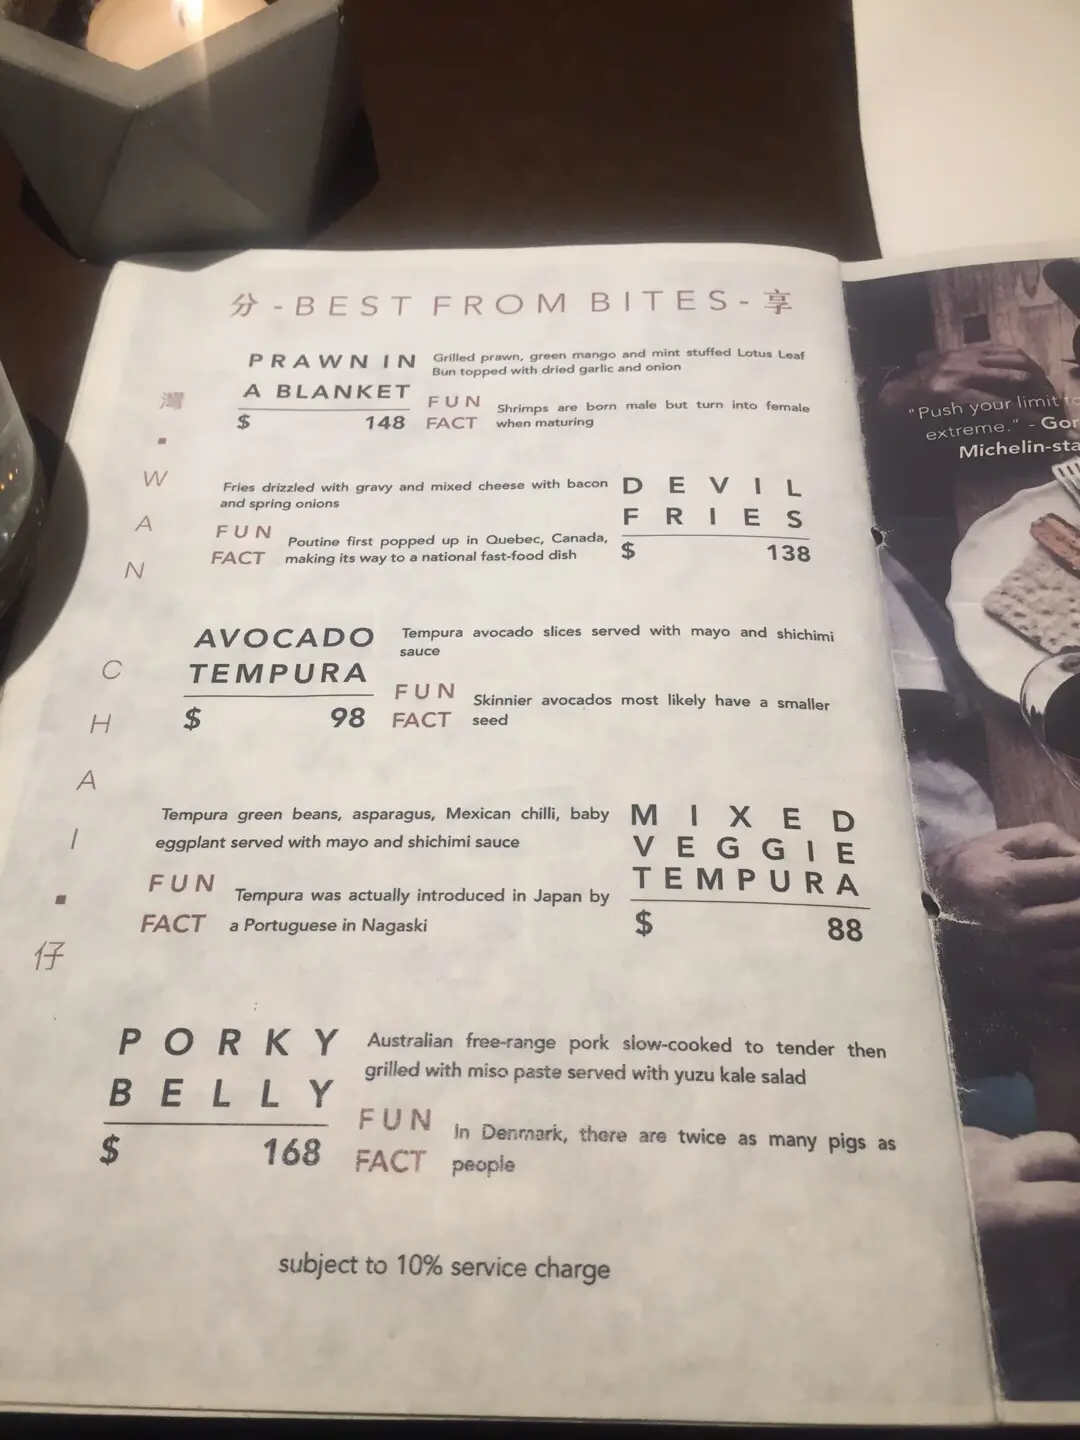 分 - BEST FROM BITES - 享
PRAWN IN
A BLANKET
$ 148
Grilled prawn, green mango and mint stuffed Lotus Leaf
Bun topped with dried garlic and onion
FUN
FACT
Shrimps are born male but turn into female
when maturing
Fries drizzled with gravy and mixed cheese with bacon
and spring onions
FUN
FACT
Poutine first popped up in Quebec, Canada,
making its way to a national fast-food dish
DEVIL
FRIES
$ 138
AVOCADO
TEMPURA
$ 98
Tempura avocado slices served with mayo and shichimi
sauce
FUN
FACT
Skinnier avocados most likely have a smaller
seed
Tempura green beans, asparagus, Mexican chilli, baby
eggplant served with mayo and shichimi sauce
FUN
FACT
Tempura was actually introduced in Japan by
a Portuguese in Nagaski
MIXED
VEGGIE
TEMPURA
$ 88
PORKY
BELLY
$ 168
Australian free-range pork slow-cooked to tender then
grilled with miso paste served with yuzu kale salad
FUN
FACT
In Denmark, there are twice as many pigs as
people
subject to 10% service charge
灣 ▪ WAN CHAI ▪ 仔
"Push your limit to
extreme." - Gor
Michelin-sta